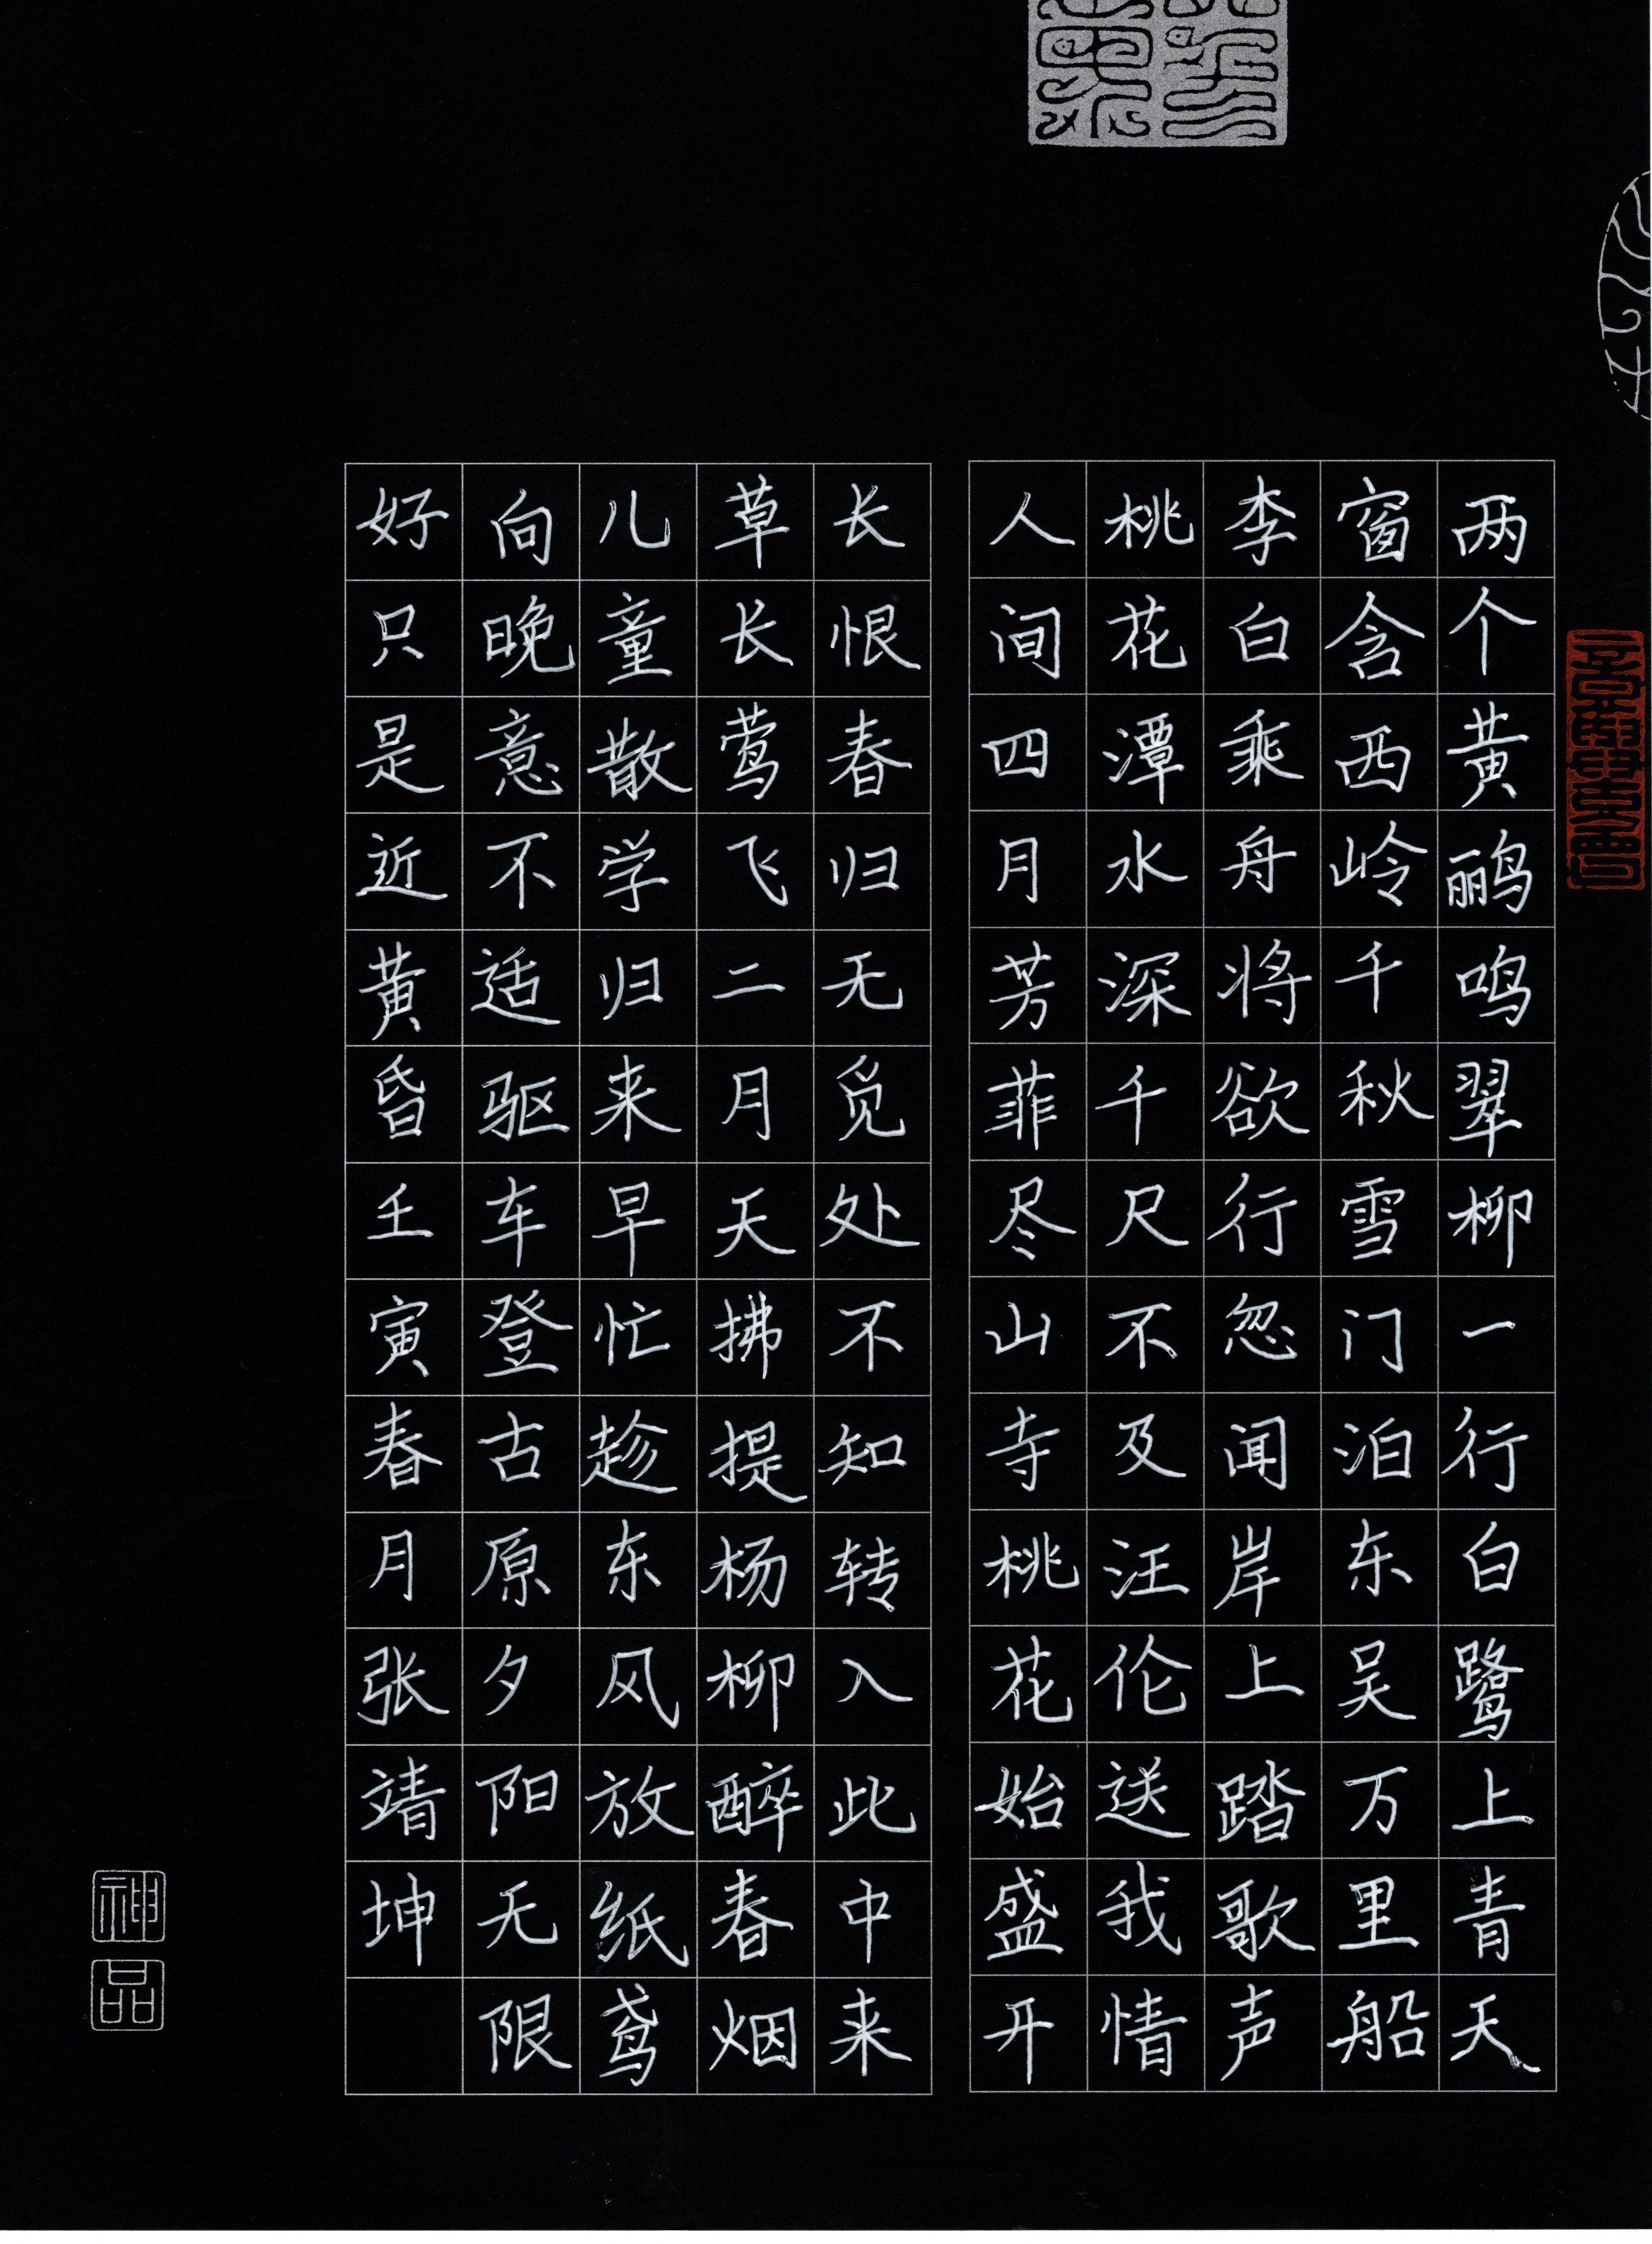 两个黄鹂鸣翠柳一行白鹭上青天
窗含西岭千秋雪门泊东吴万里船
李白乘舟将欲行忽闻岸上踏歌声
桃花潭水深千尺不及汪伦送我情
人间四月芳菲尽山寺桃花始盛开
长恨春归无觅处不知转入此中来
草长莺飞二月天拂提杨柳醉春烟
儿童散学归来早忙趁东风放纸鸢
向晚意不适驱车登古原夕阳无限
好只是近黄昏壬寅春月张靖坤
神品